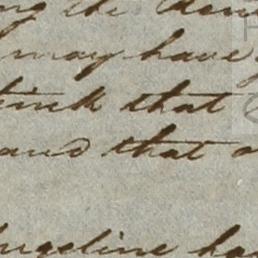 the
may have
think that
and that
Angeline